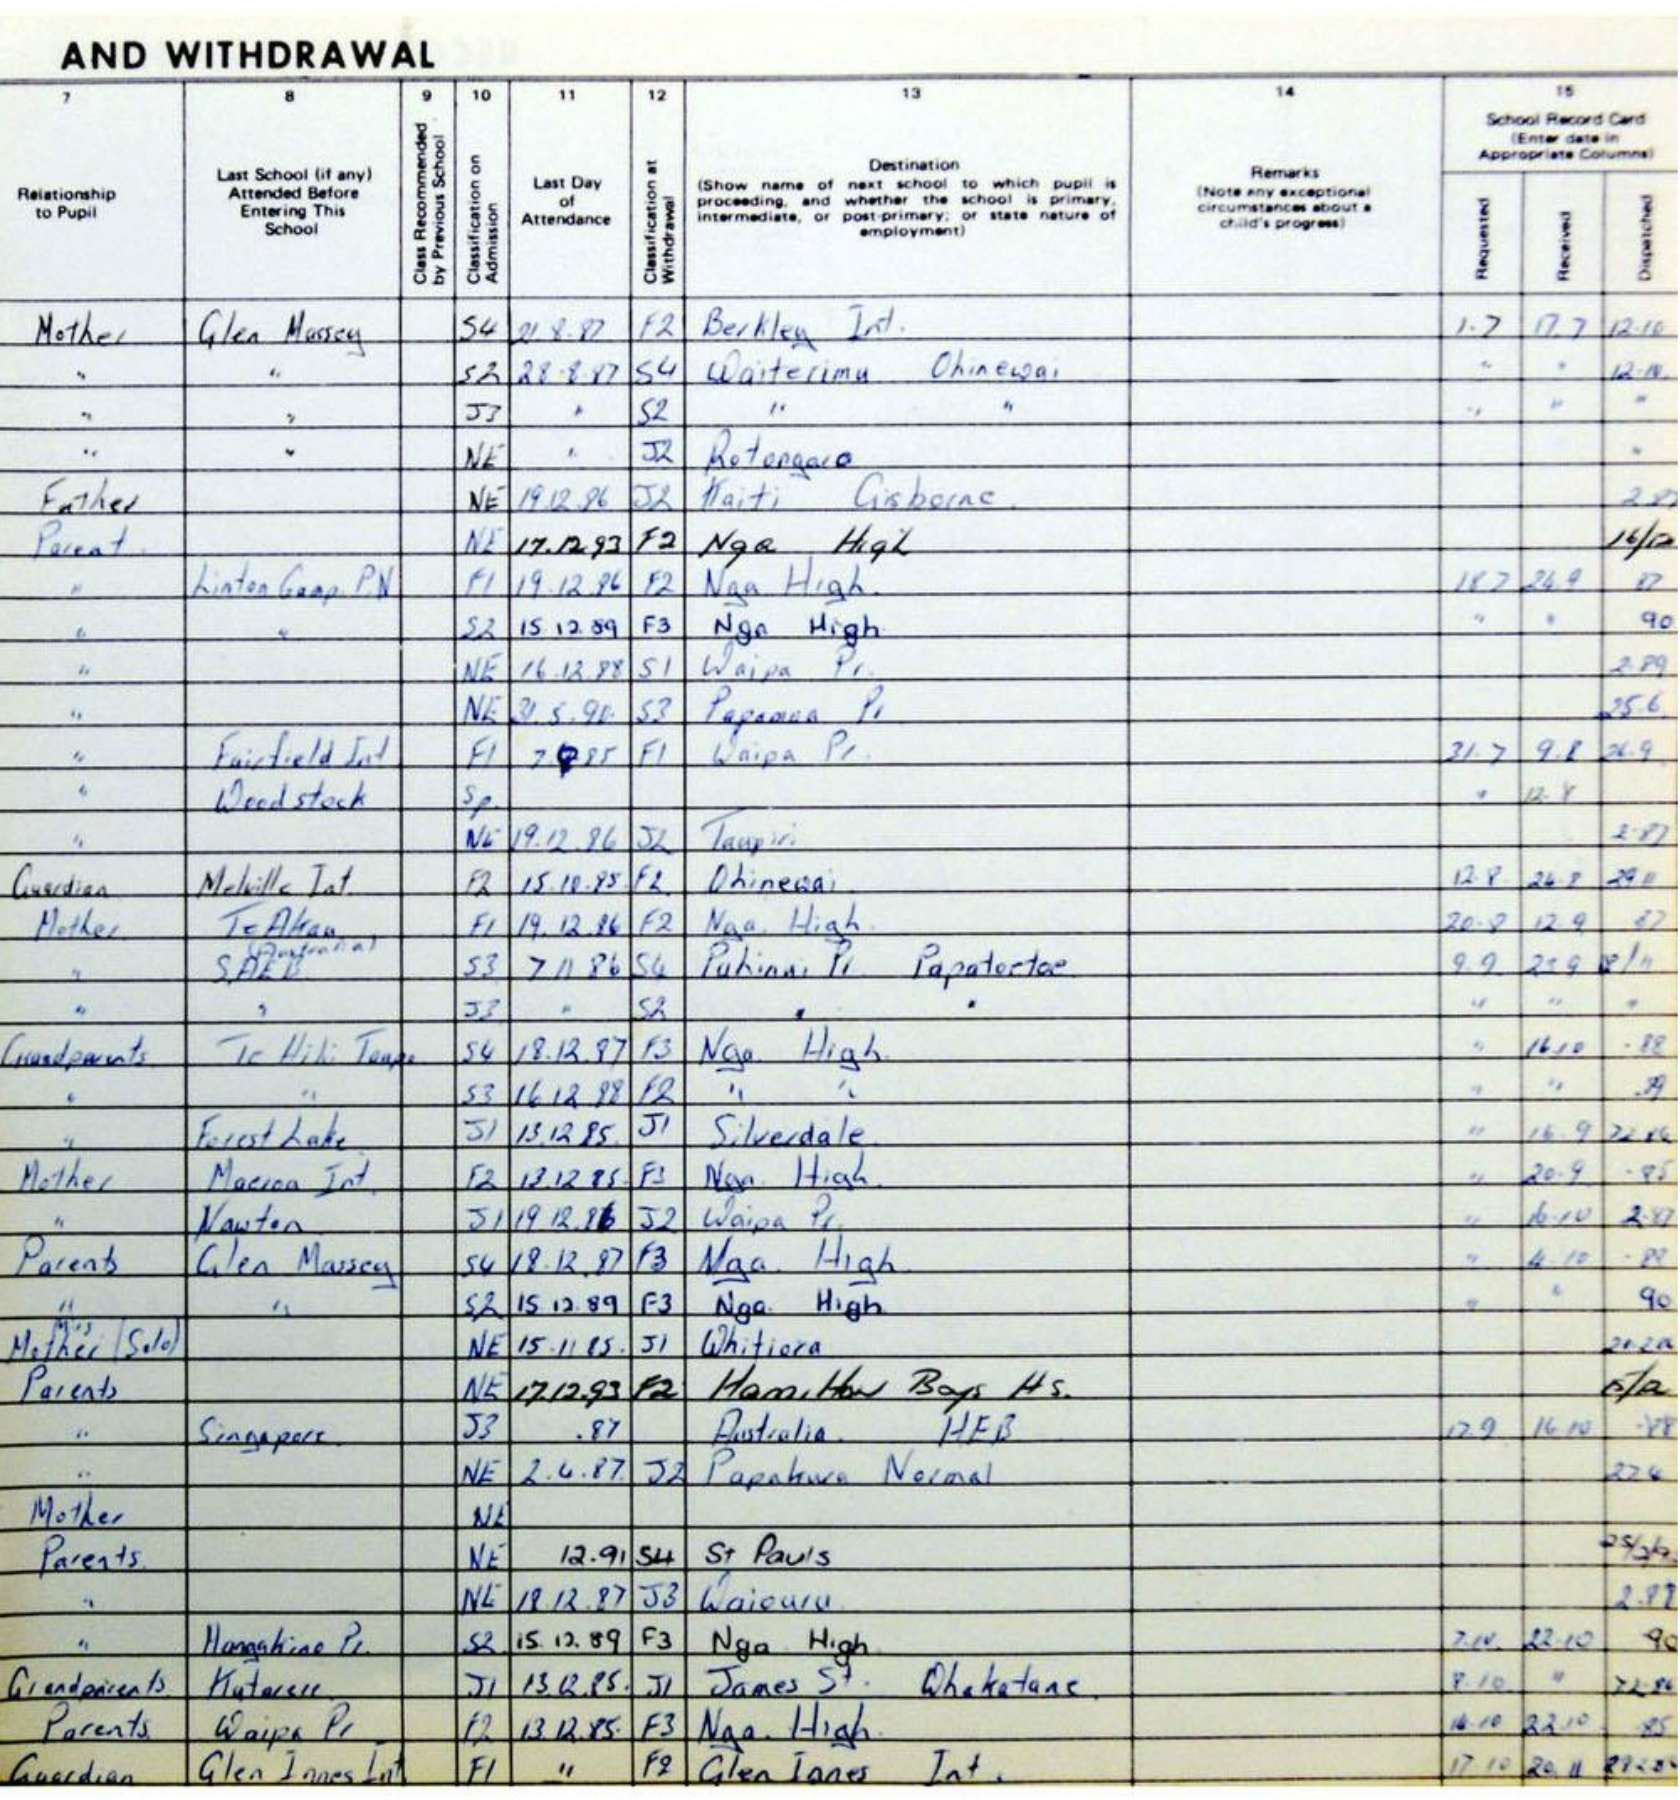 AND WITHDRAWAL
7 8 9 10 11 12 13 14 15
Relationship to Pupil
Last School (if any) Attended Before Entering This School
Class Recommended by Previous School
Classification on Admission
Last Day of Attendance
Classification at Withdrawal
Destination
(Show name of next school to which pupil is proceeding, and whether the school is primary, intermediate, or post-primary; or state nature of employment)
Remarks
(Note any exceptional circumstances about a child's progress)
School Record Card
(Enter date in Appropriate Columns)
Requested Received Dispatched
Mother Glen Massey S4 21.8.87 F2 Berkley Int. 1.7 17.7 12.10
" " S2 28.8.87 S4 Waiterimu Ohinewai " " 12.10.
" " J3 " S2 " " " " "
" " NE " J2 Rotongaro "
Father NE 19.12.86 J2 Kaiti Gisborne 2.87
Parent NE 17.12.93 F2 Nga High
" Linton Camp. P.N F1 19.12.86 F2 Nga High. 18.7 24.9 87
" " S2 15.12.89 F3 Nga High " " 90
" NE 16.12.88 S1 Waipa Pr. 2.89
" NE 31.5.90. S3 Papamoa Pr 25.6
" Fairfield Int F1 85 F1 Waipa Pr. 31.7 9.8 26.9
" Woodstock Sp. " 12.8
" NE 19.12.86 J2 Taupiri 2.87
Guardian Melville Int. F2 15.10.85 F2 Ohinewai 12.8. 26.8 29.11
Mother Te Akau F1 19.12.86 F2 Nga. High. 20.8 12.9 87
" (Australia) S3 7.11.86 S4 Puhinui Pr Papatoetoe 9.9 23.9
" " J3 " S2 " " " " "
Grandparents Te Hiki Taupo S4 18.12.87 F3 Nga. High. " 16.10 .88
" " S3 16.12.88 F2 " " " " .89
" Forest Lake J1 13.12.85. J1 Silverdale " 16.9
Mother Maeroa Int. F2 13.12.85. F3 Nga. High. " 20.9 .85
" Nawton J1 19.12.86 J2 Waipa Pr. " 16.10 2.87
Parents Glen Massey S4 18.12.87 F3 Nga. High. " 4.10 .88
" " S2 15.12.89 F3 Nga. High " " 90
Mother (Solo) NE 15.11.85. J1 Whitiora
Parents NE 17.12.93 F2 Hamilton Boys Hs.
" Singapore J3 .87 Australia. HEB 17.9 16.10 .88
" NE 2.4.87. J2 Papakura Normal 27.4
Mother NE
Parents. NE 12.91 S4 St Pauls
" NE 18.12.87 J3 Waiouru 2.88
" Mangakino Pr. S2 15.12.89 F3 Nga High 7.10. 22.10 90
Grandparents. Kutarere J1 13.12.85. J1 James St. Whakatane. 8.10 "
Parents. Waipa Pr F2 13.12.85. F3 Nga. High. 16.10 22.10 .85
Guardian Glen Innes Int F1 " F2 Glen Innes Int. 17.10 20.11